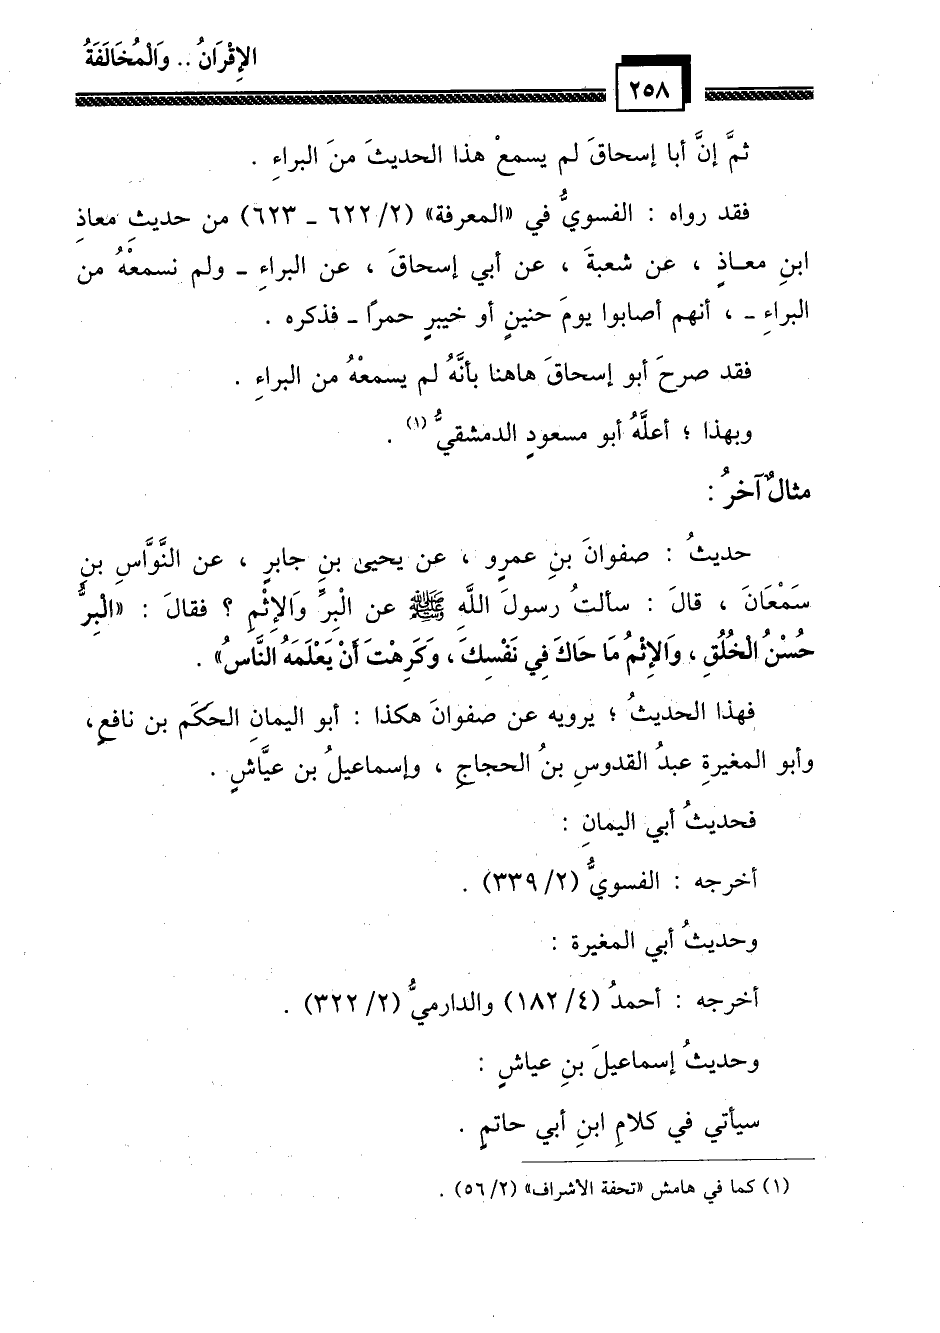 الإِقْرَانُ .. وَالْمُخَالَفَةُ
٢٥٨
ثمَّ إنَّ أبا إسحاقَ لم يسمعْ هذا الحديثَ منَ البراءِ .
فقد رواه : الفسويُّ في «المعرفة» (٢/ ٦٢٢ ـ ٦٢٣) من حديثِ معاذِ
ابنِ معـاذٍ ، عن شعبةَ ، عن أبي إسحاقَ ، عن البراءِ ـ ولم نسمعْهُ من
البراءِ ـ ، أنهم أصابوا يومَ حنينٍ أو خيبرٍ حمرًا ـ فذكره .
فقد صرحَ أبو إسحاقَ هاهنا بأنَّهُ لم يسمعْهُ من البراءِ .
وبهذا ؛ أعلَّهُ أبو مسعودٍ الدمشقيُّ (١) .
مثالٌ آخرُ :
حديثُ : صفوانَ بنِ عمرٍو ، عن يحيىٰ بنِ جابرٍ ، عن النَّوَّاسِ بنِ
سَمْعَانَ ، قالَ : سألتُ رسولَ اللَّهِ ﷺ عن الْبِرِّ وَالإِثْمِ ؟ فقالَ : «الْبِرُّ
حُسْنُ الْخُلُقِ ، وَالإِثْمُ مَا حَاكَ فِي نَفْسِكَ ، وَكَرِهْتَ أَنْ يَعْلَمَهُ النَّاسُ» .
فهذا الحديثُ ؛ يرويه عن صفوانَ هكذا : أبو اليمانِ الحكَم بن نافعٍ،
وأبو المغيرةِ عبدُ القدوسِ بنُ الحجاجِ ، وإسماعيلُ بن عيَّاشٍ .
فحديثُ أبي اليمانِ :
أخرجه : الفسويُّ (٢/ ٣٣٩) .
وحديثُ أبي المغيرة :
أخرجه : أحمدُ (٤/ ١٨٢) والدارميُّ (٢/ ٣٢٢) .
وحديثُ إسماعيلَ بنِ عياشٍ :
سيأتي في كلامِ ابنِ أبي حاتمٍ .
(١) كما في هامش «تحفة الأشراف» (٢/ ٥٦) .